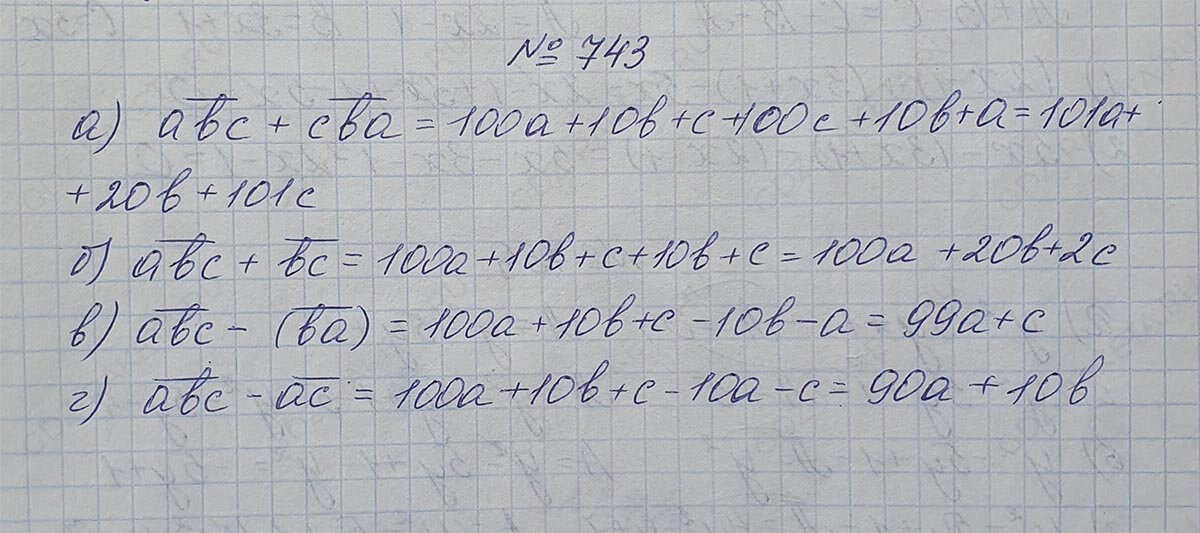 № 743
а) a̅b̅c̅ + c̅b̅a̅ = 100a + 10b + c + 100c + 10b + a = 101a +
+ 20b + 101c
б) a̅b̅c̅ + b̅c̅ = 100a + 10b + c + 10b + c = 100a + 20b + 2c
в) a̅b̅c̅ - (b̅a̅) = 100a + 10b + c - 10b - a = 99a + c
г) a̅b̅c̅ - a̅c̅ = 100a + 10b + c - 10a - c = 90a + 10b